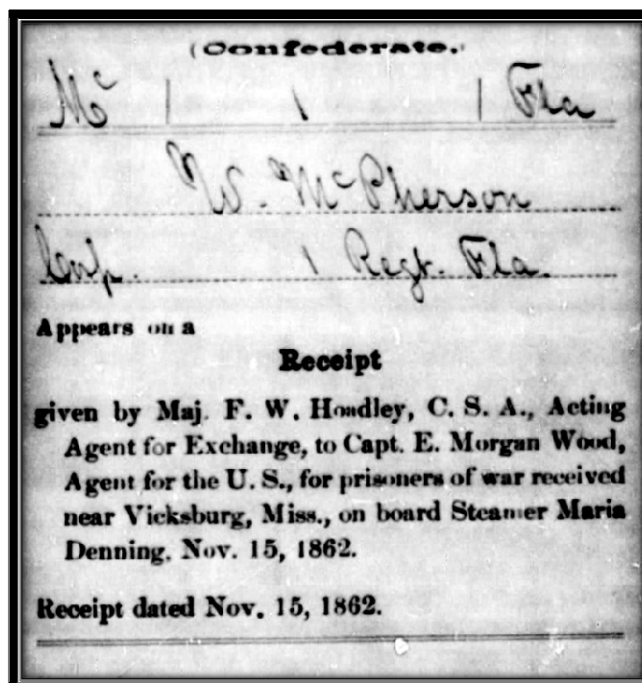 (Confederate.)
Mc | 1 | Fla
W. McPherson
Corp. 1 Regt. Fla.
Appears on a
Receipt
given by Maj. F. W. Hoadley, C. S. A., Acting
Agent for Exchange, to Capt. E. Morgan Wood,
Agent for the U. S., for prisoners of war received
near Vicksburg, Miss., on board Steamer Maria
Denning, Nov. 15, 1862.
Receipt dated Nov. 15, 1862.